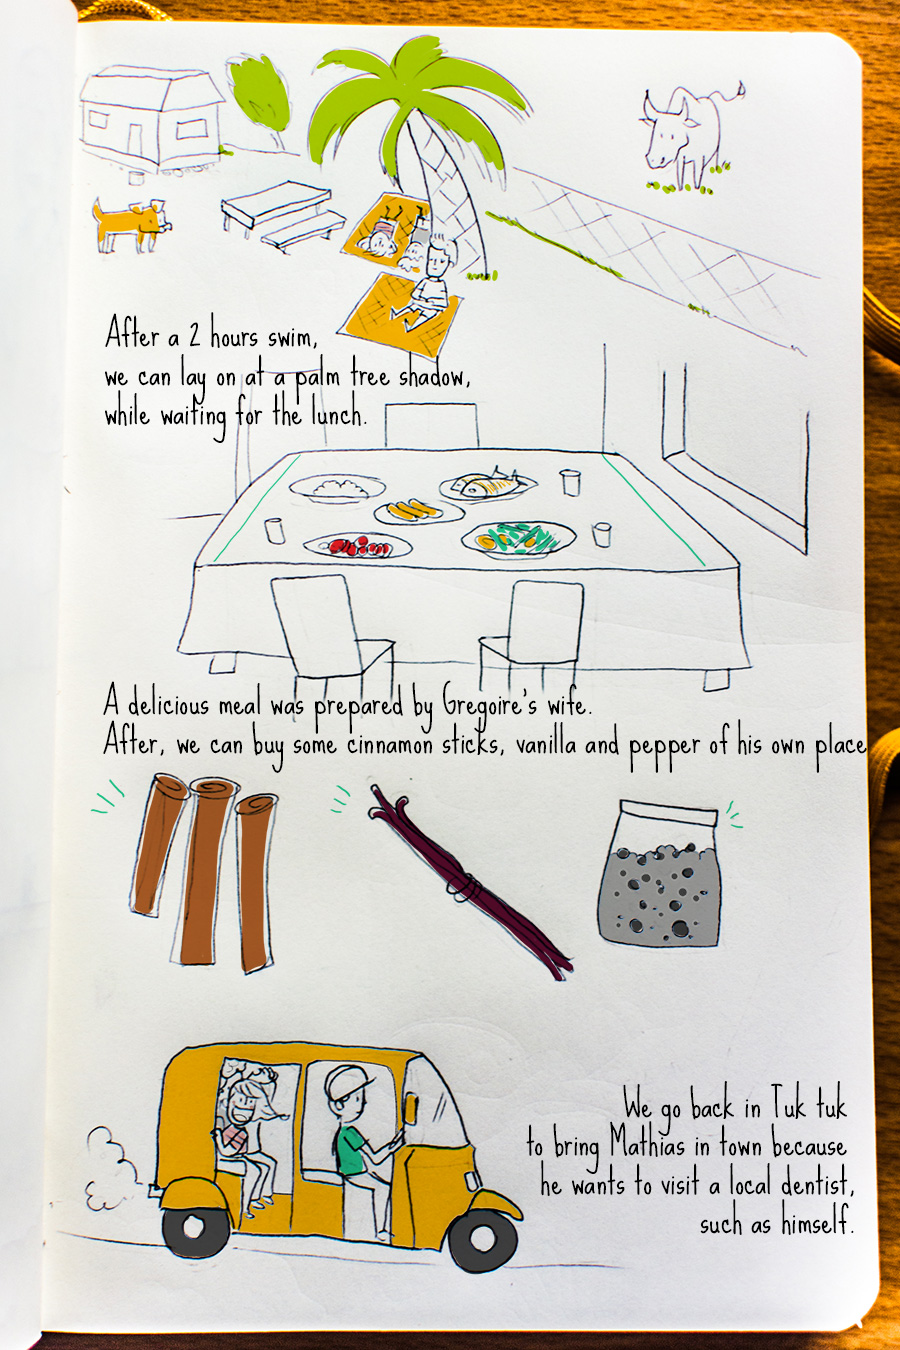 After a 2 hours swim,
we can lay on at a palm tree shadow,
while waiting for the lunch.
A delicious meal was prepared by Gregoire's wife.
After, we can buy some cinnamon sticks, vanilla and pepper of his own place
We go back in Tuk tuk
to bring Mathias in town because
he wants to visit a local dentist,
such as himself.